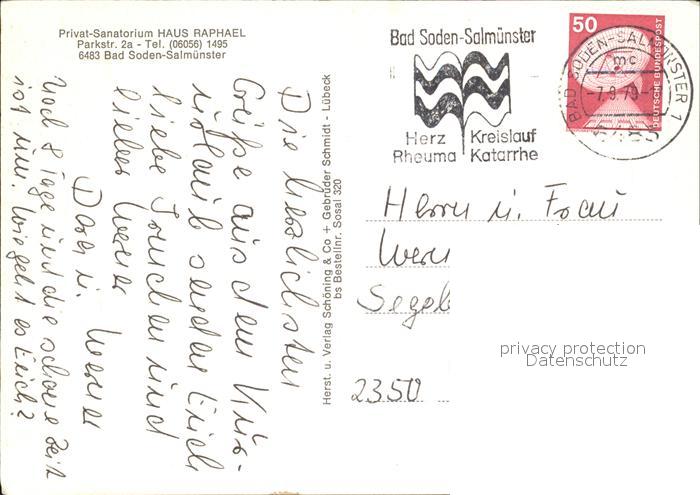 Privat-Sanatorium HAUS RAPHAEL
Parkstr. 2a - Tel. (06056) 1495
6483 Bad Soden-Salmünster
Bad Soden-Salmünster
Herz Kreislauf
Rheuma Katarrhe
50
DEUTSCHE BUNDESPOST
BAD SODEN-SALMÜNSTER 1
mc
-7.9.79-
Herst. u. Verlag Schöning & Co + Gebrüder Schmidt - Lübeck
bs Bestellnr. Sosal 320
Die herzlichsten
Grüße aus dem Kur-
urlaub senden Euch
liebe und
lieber Werner
Dora u. Werner
Noch 8 Tage und die schöne Zeit
ist um. Wie geht es Euch?
Herrn u. Frau
Wern
Segeb
2350
privacy protection
Datenschutz